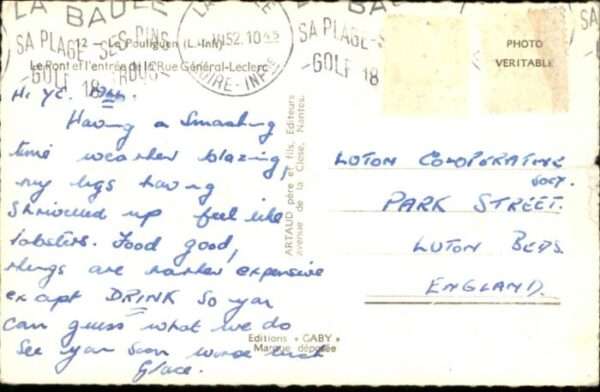 LA BAULE
SA PLAGE - SES PINS
GOLF 18 TROUS
52. 10
LOIRE-INFRE
LA BAULE
SA PLAGE-S
GOLF 18
PHOTO
VERITABLE
12 - Le Pouliguen (L.-Inf.)
Le Pont et l'entrée de la Rue Général-Leclerc
Hi Ye.
Having a Smashing
time weather blazing,
my legs having
Shrivelled up feel like
lobsters. Food good,
things are rather expensive
except DRINK So you
can guess what we do
See you Soon worse luck
Grace.
ARTAUD père et fils, Editeurs
avenue de la Close, Nantes.
Editions « GABY »
Marque déposée
LUTON COOPERATIVE
SOCY.
PARK STREET.
LUTON BEDS.
ENGLAND.